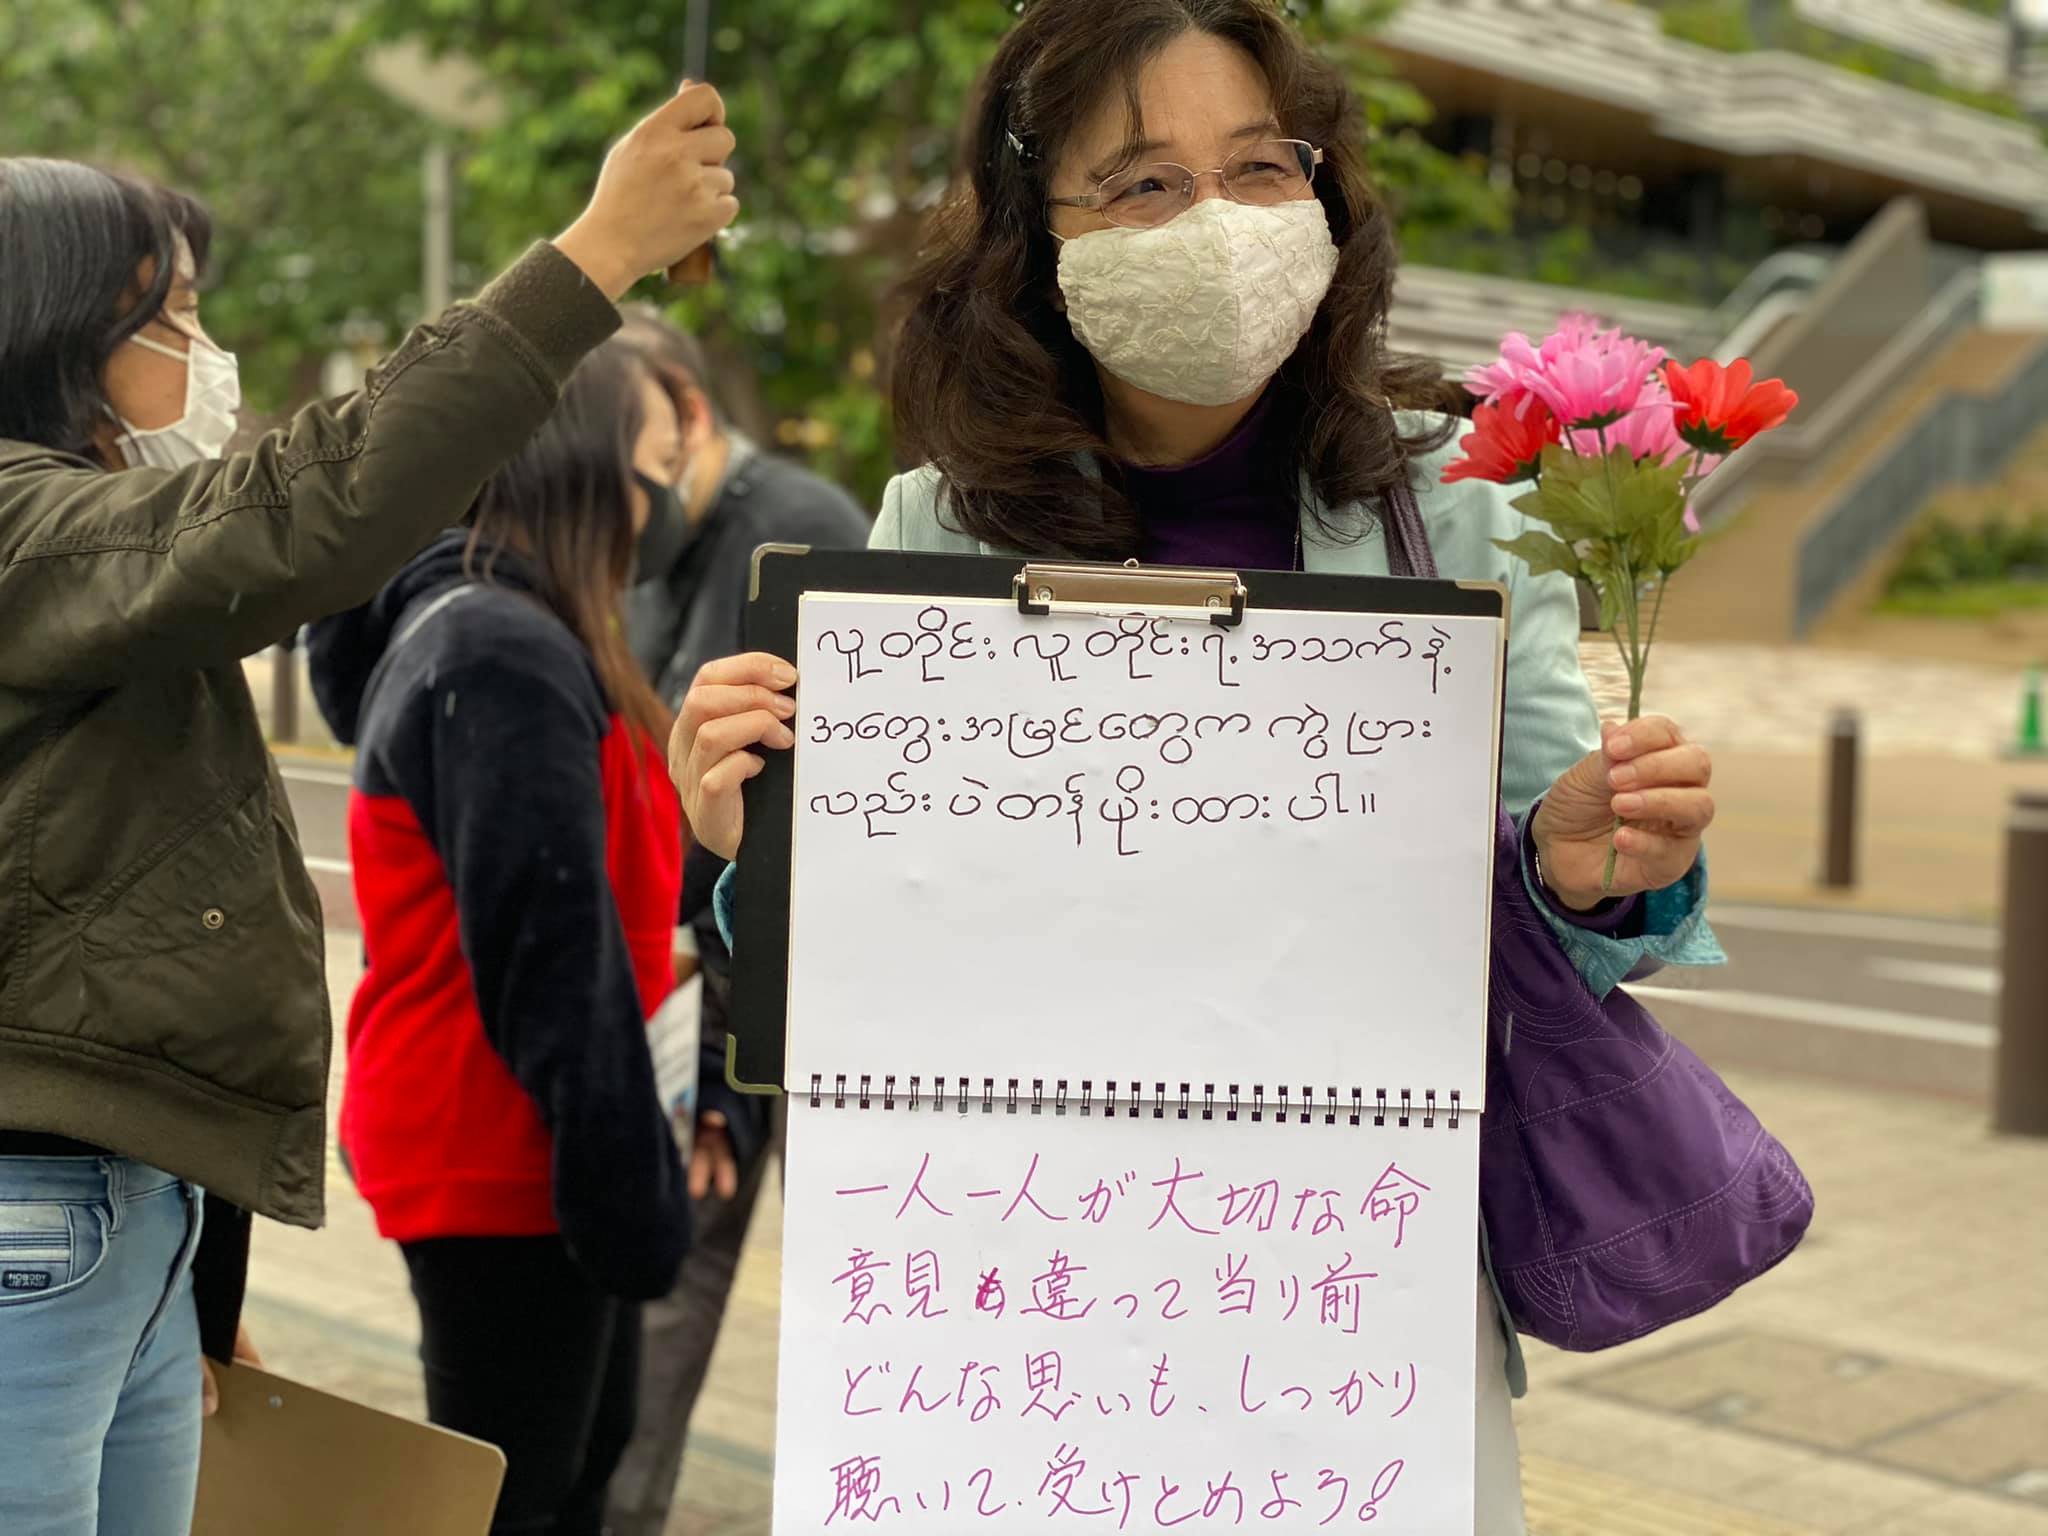 လူတိုင်း လူတိုင်းရဲ့ အသက်နဲ့
အတွေးအမြင်တွေက ကွဲပြား
လည်း ပဲ တန်ဖိုးထားပါ။
一人一人が大切な命
意見も違って当り前
どんな思いも、しっかり
聴いて、受けとめよう!
NOBODY
JEANS